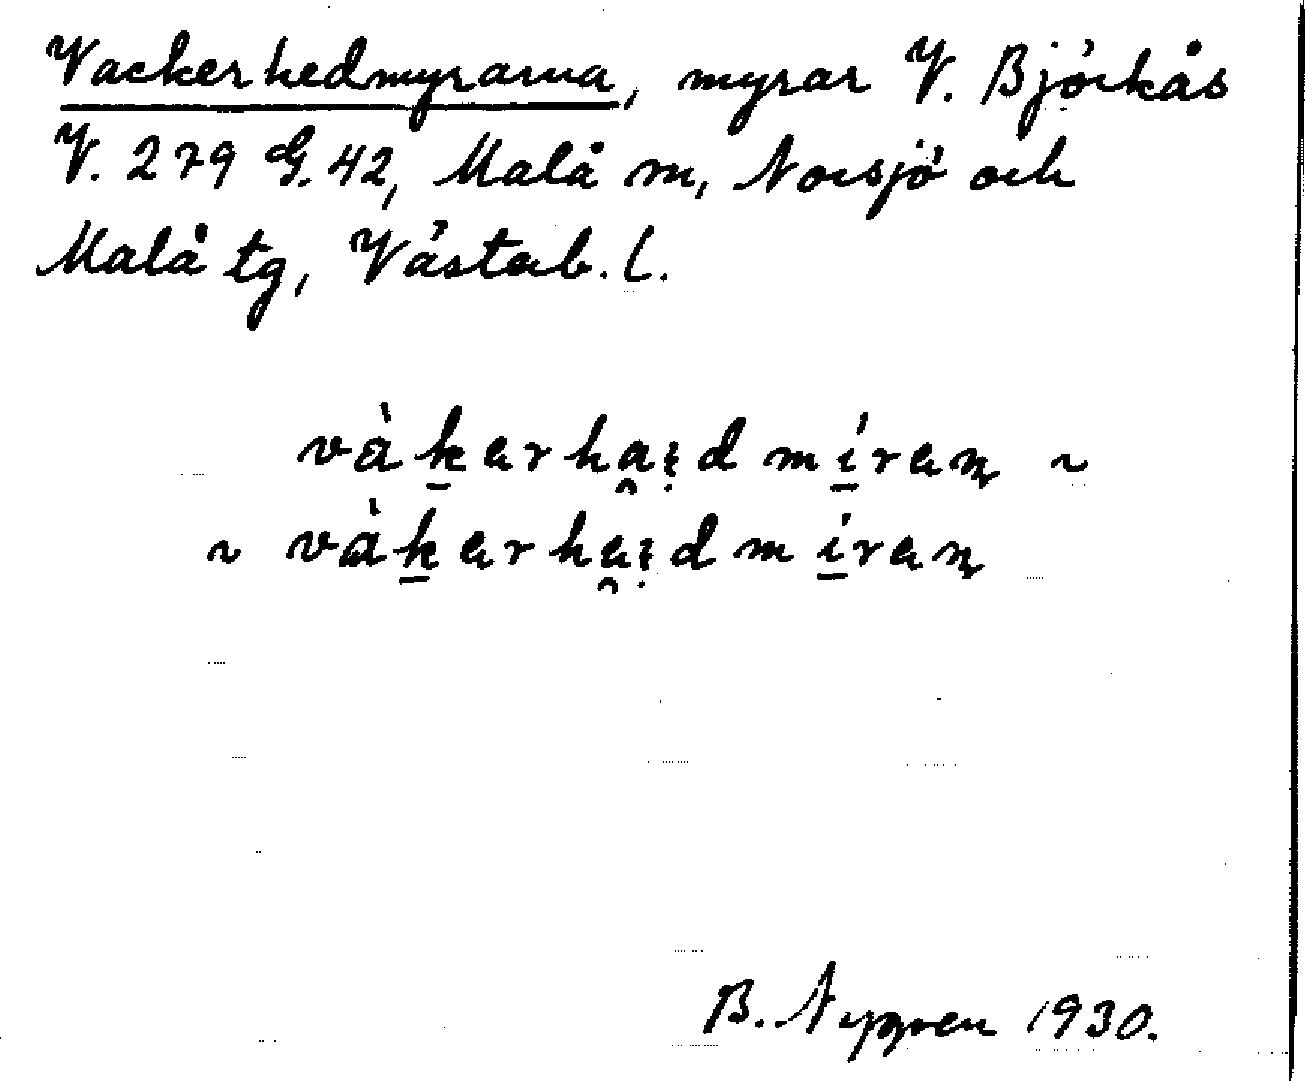 Vackerhedmyrarna, myrar V. Björkås
V. 279 G. 42, Malå sn, Norsjö och
Malå tg, Västerb. l.
vàk̲erha̯i̤d mí̲ran̡ ~
~ vàk̲erha̯i̤d mí̲ran̡
B. Nygren 1930.